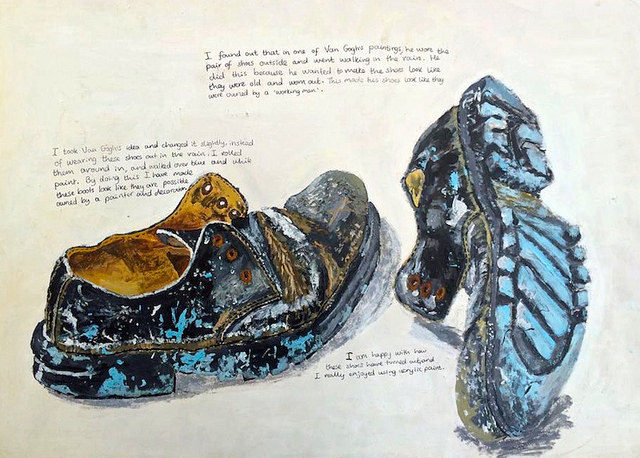 I found out that in one of Van Goghs paintings, he wore the
pair of shoes outside and went walking in the rain. He
did this because he wanted to make the shoes look like
they were old and worn out. This made his shoes look like they
were owned by a 'working man'.
I took Van Goghs idea and changed it slightly, instead
of wearing these shoes out in the rain, I rolled
them around in, and walked over blue and white
paint. By doing this I have made
these boots look like they are possible
owned by a painter and decorator.
I am happy with how
these shoes have turned out and
I really enjoyed using acrylic paint.